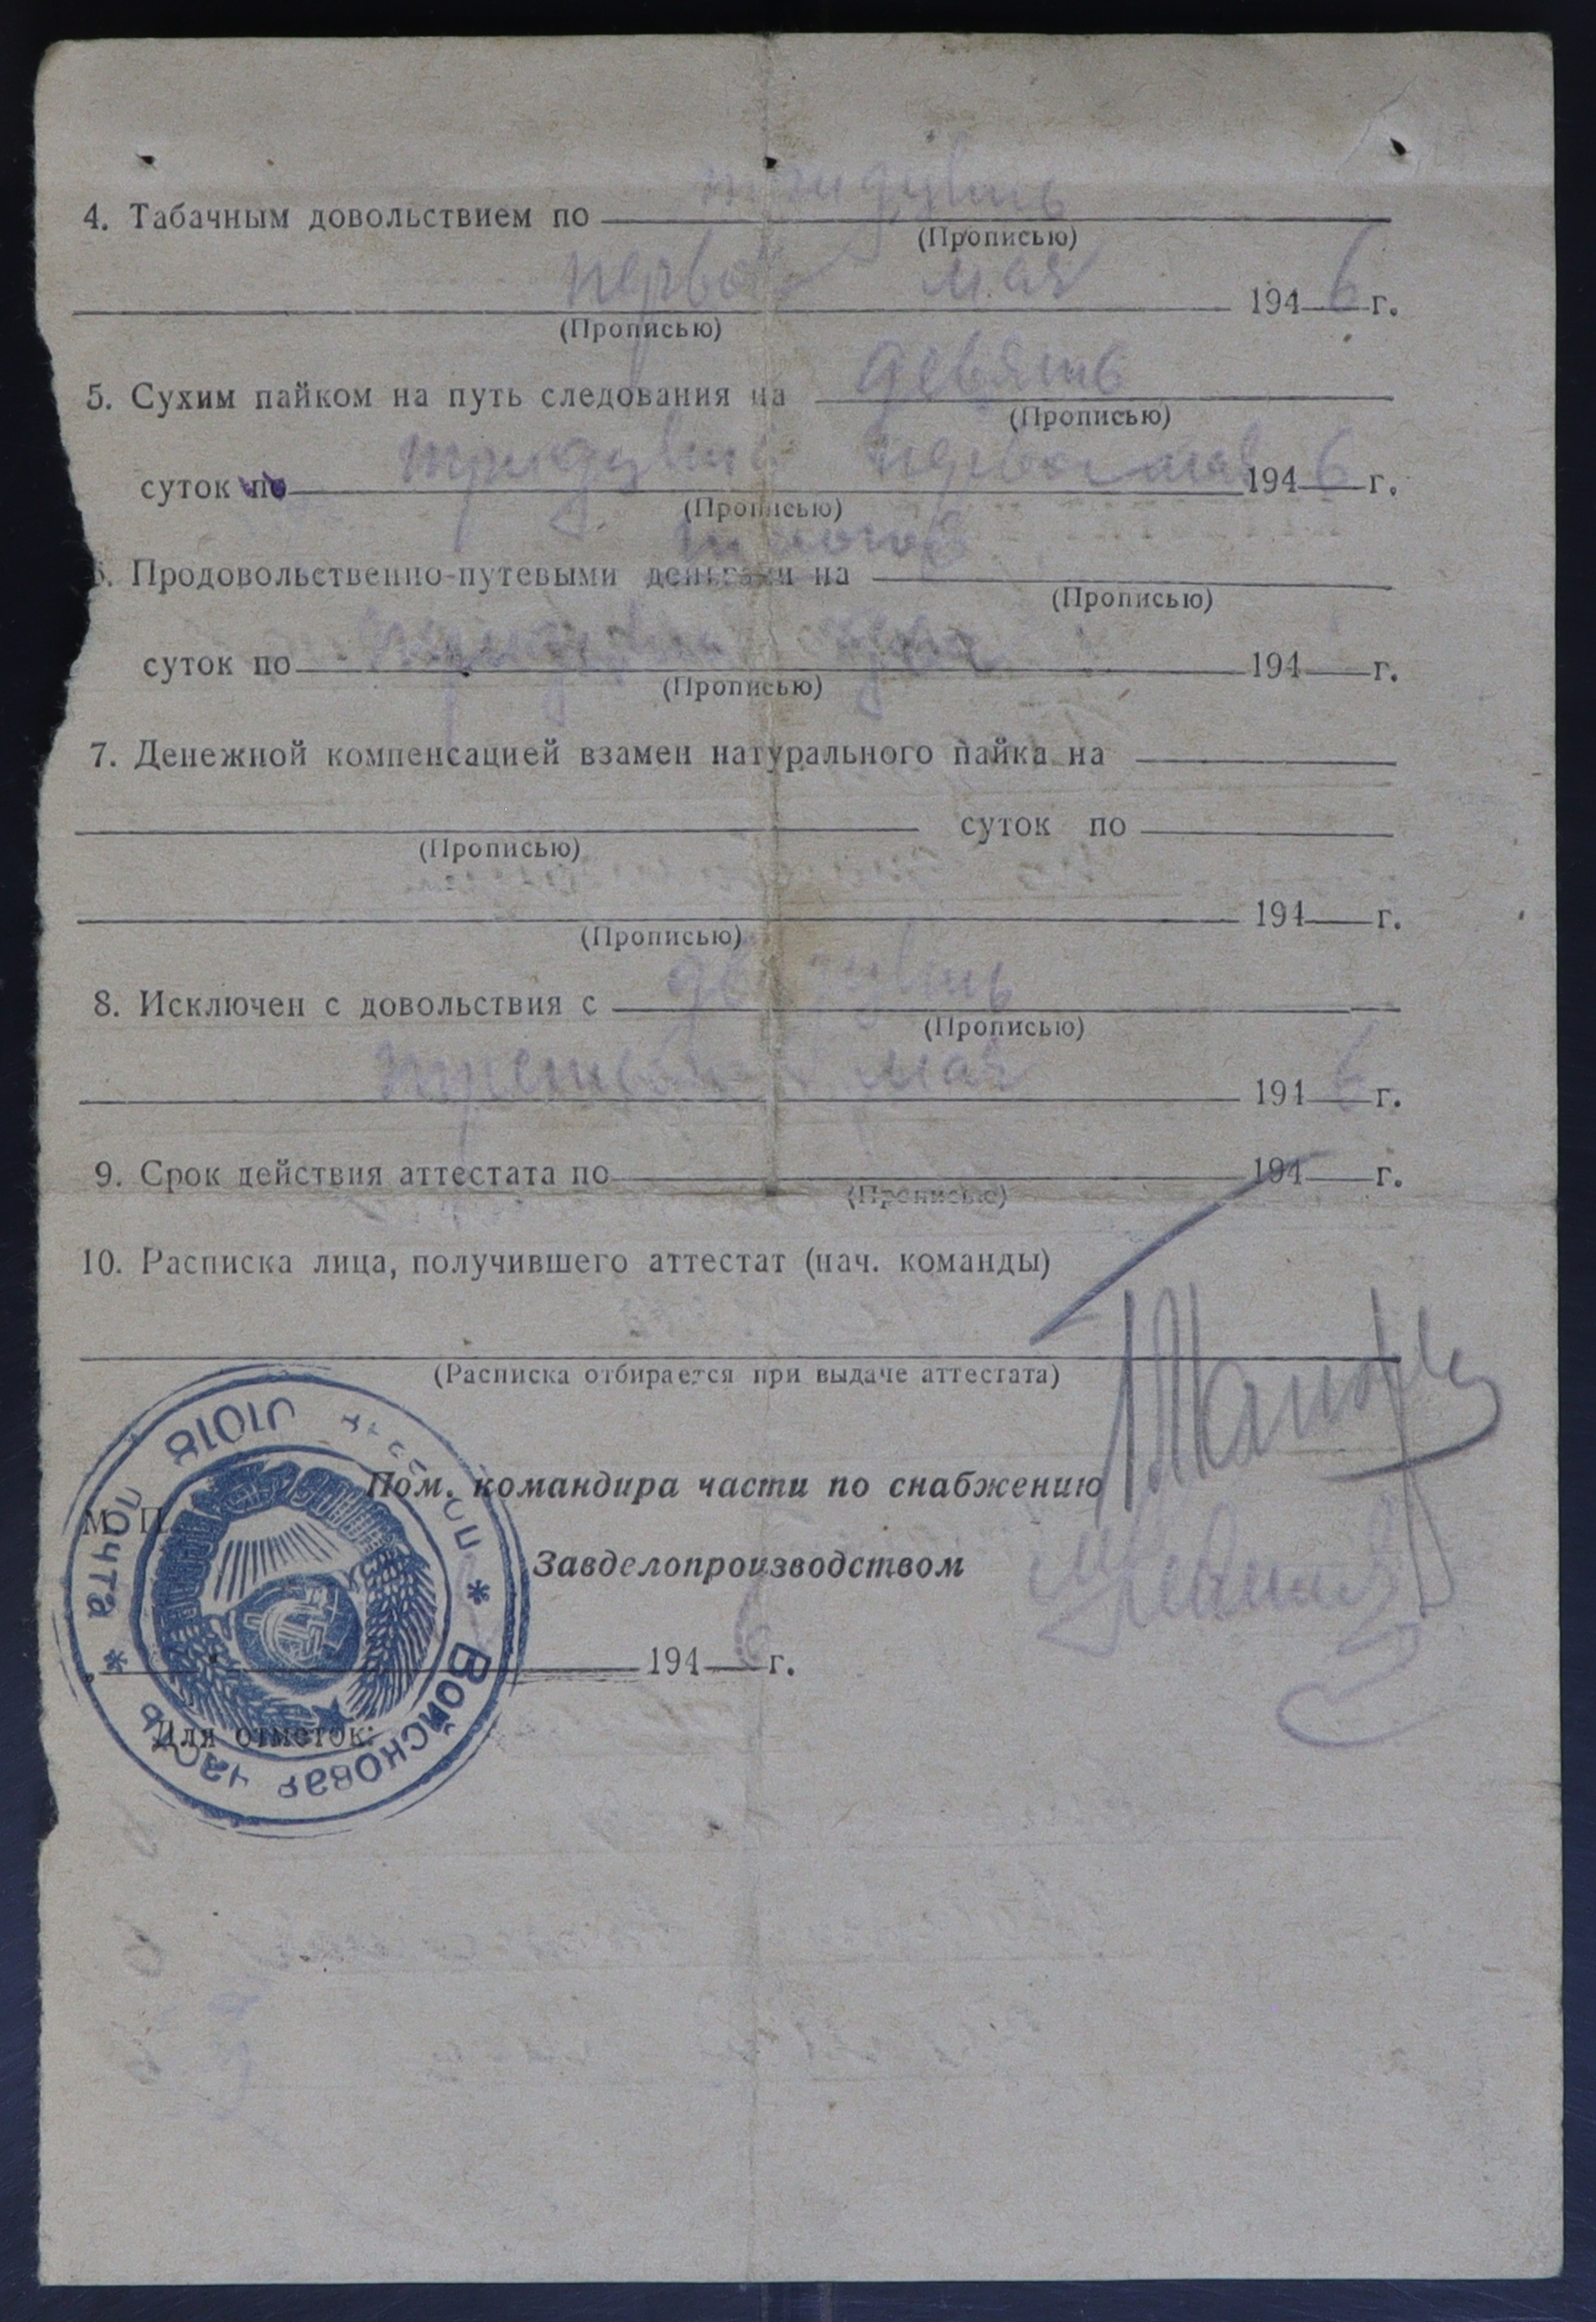 4. Табачным довольствием по тридцать
(Прописью)
первое мая 1946 г.
(Прописью)
5. Сухим пайком на путь следования на девять
(Прописью)
суток по тридцать первое мая 1946 г.
(Прописью)
6. Продовольственно-путевыми деньгами на
(Прописью)
суток по 194 г.
(Прописью)
7. Денежной компенсацией взамен натурального пайка на
суток по
(Прописью)
194 г.
(Прописью)
8. Исключен с довольствия с двадцать
(Прописью)
третьего мая 1946 г.
9. Срок действия аттестата по 194 г.
(Прописью)
10. Расписка лица, получившего аттестат (нач. команды)
(Расписка отбирается при выдаче аттестата)
Пом. командира части по снабжению
М. П.
Завделопроизводством
1946 г.
Для отметок:
* Войсковая часть * почта